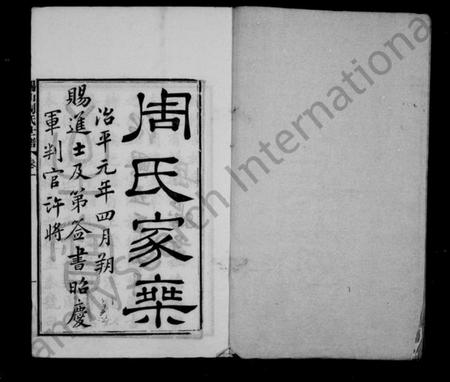 周氏家乗
治平元年四月朔
賜進士及第簽書昭慶
軍判官許將
FamilySearch International